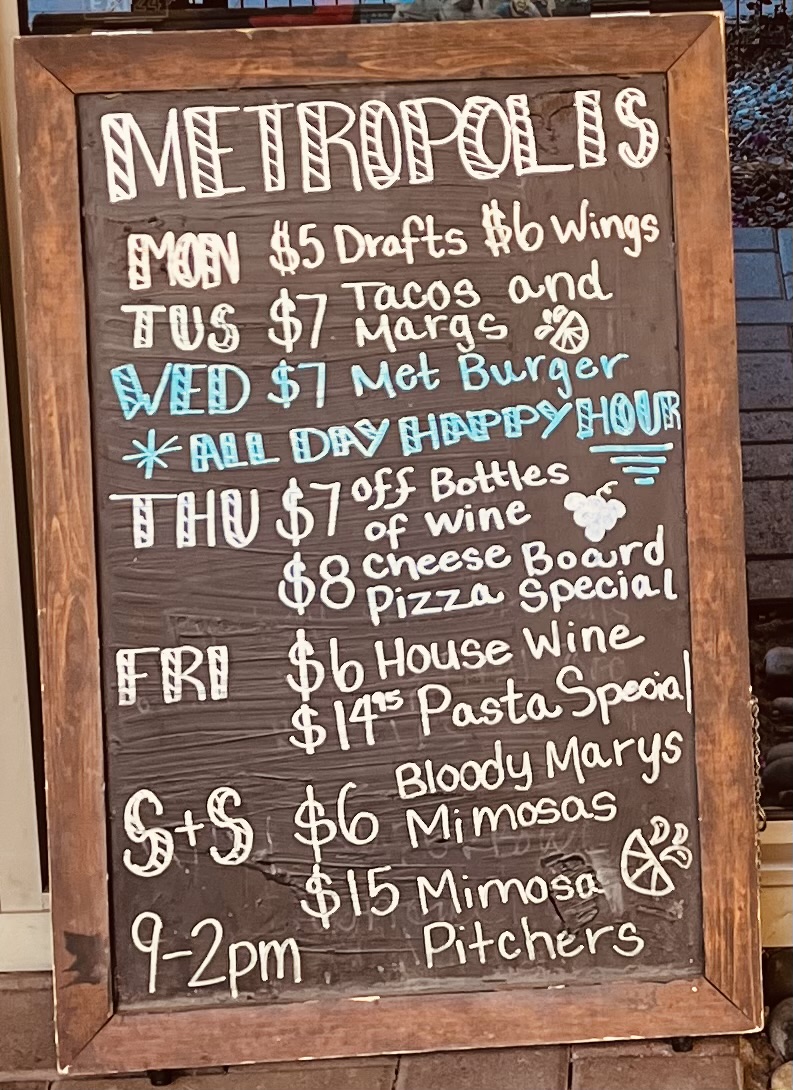 METROPOLIS
MON $5 Drafts $6 Wings
TUS $7 Tacos and
Margs
WED $7 Met Burger
*ALL DAY HAPPY HOUR
THU $7 off Bottles
of Wine
$8 Cheese Board
Pizza Special
FRI $6 House Wine
$14.95 Pasta Special
S+S $6 Bloody Marys
Mimosas
$15 Mimosa
9-2pm Pitchers